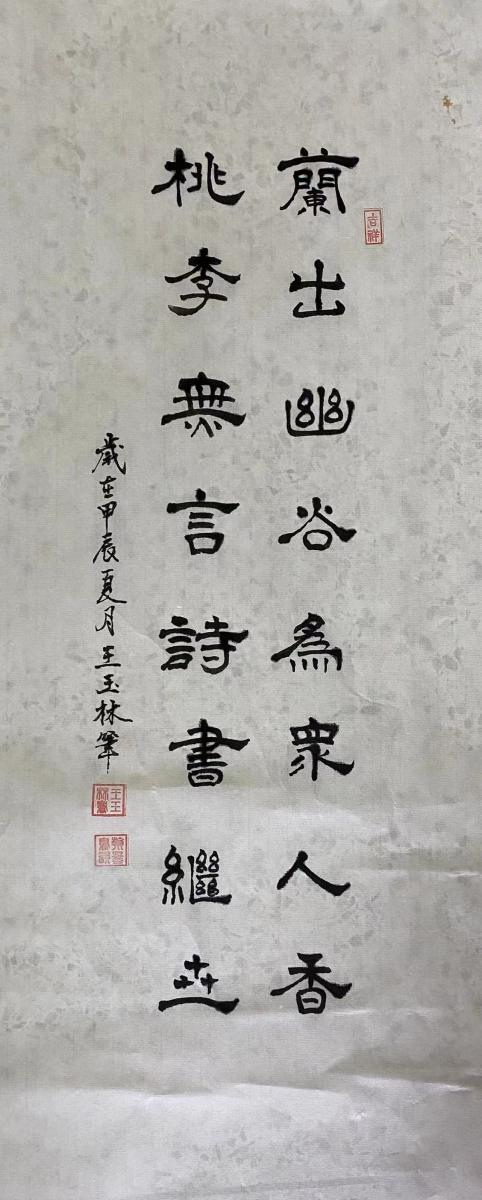 蘭出幽谷為衆人香
吉祥
桃李無言詩書繼世
歲在甲辰夏月王玉林筆